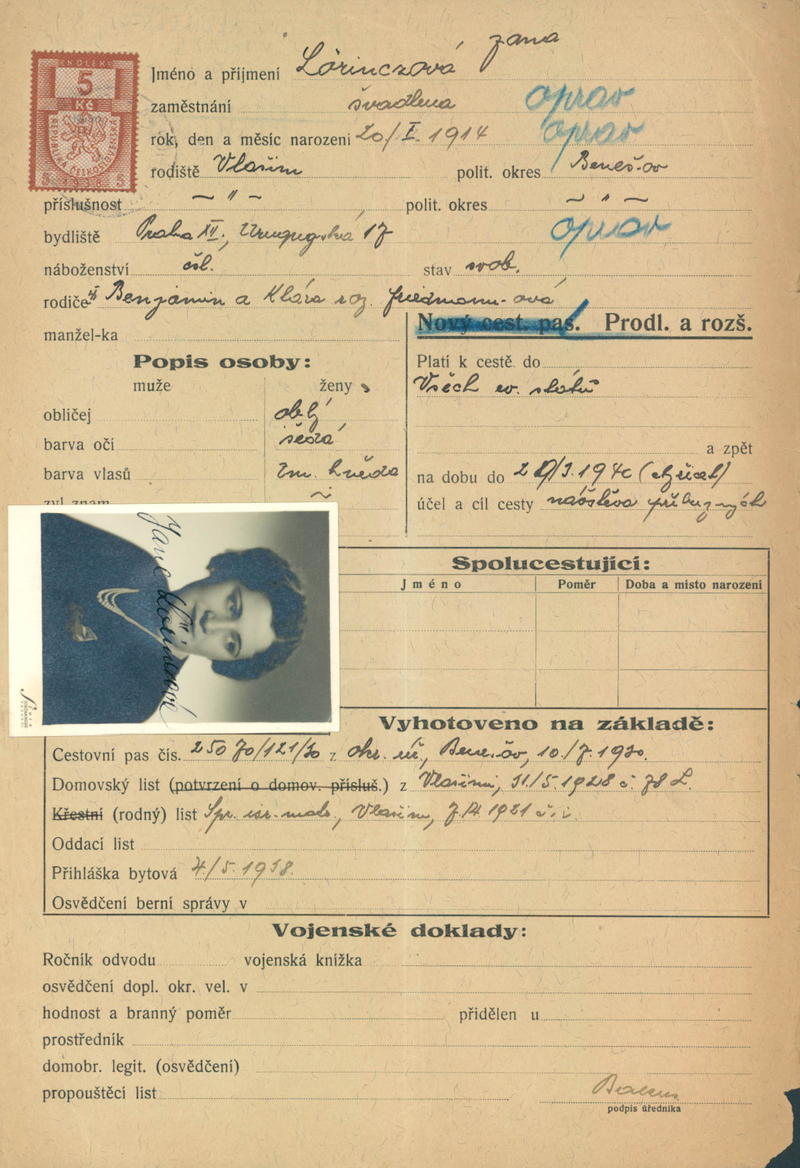 KOLEK
5
Kč
REPUBLIKA ČESKOSLOVENSKÁ
5 1938 5
Jméno a příjmení Lörinczová Jana
zaměstnání švadlena oprav
rok, den a měsíc narození 20/I. 1914 oprav
rodiště Vlašim polit. okres Benešov
příslušnost — " — polit. okres — " —
bydliště Praha XII., Uruguayská 17 oprav
náboženství stav svob.
rodiče Benjamin a Klára roz. Friedmann-ová
manžel-ka
Nový cest. pas. Prodl. a rozš.
Popis osoby:
muže ženy
obličej oblý
barva očí šedá
barva vlasů tm. hnědá
zvl. znam. ~
Platí k cestě do
Všech ev. států
a zpět
na dobu do 1940
účel a cíl cesty návštěva příbuzných
Jana Lörinczová
Spolucestující:
Jméno Poměr Doba a místo narození
Vyhotoveno na základě:
Cestovní pas čís. 25070/121/30 z okr. úř. Benešov, 10/7. 1930.
Domovský list (potvrzení o domov. přísluš.) z Vlašimi, 31/5. 1928 č. 78
Křestní (rodný) list Spr. isr. matr., Vlašim, 1921
Oddací list
Přihláška bytová 4/5. 1938.
Osvědčení berní správy v
Vojenské doklady:
Ročník odvodu vojenská knížka
osvědčení dopl. okr. vel. v
hodnost a branný poměr přidělen u
prostředník
domobr. legit. (osvědčení)
propouštěcí list
podpis úředníka